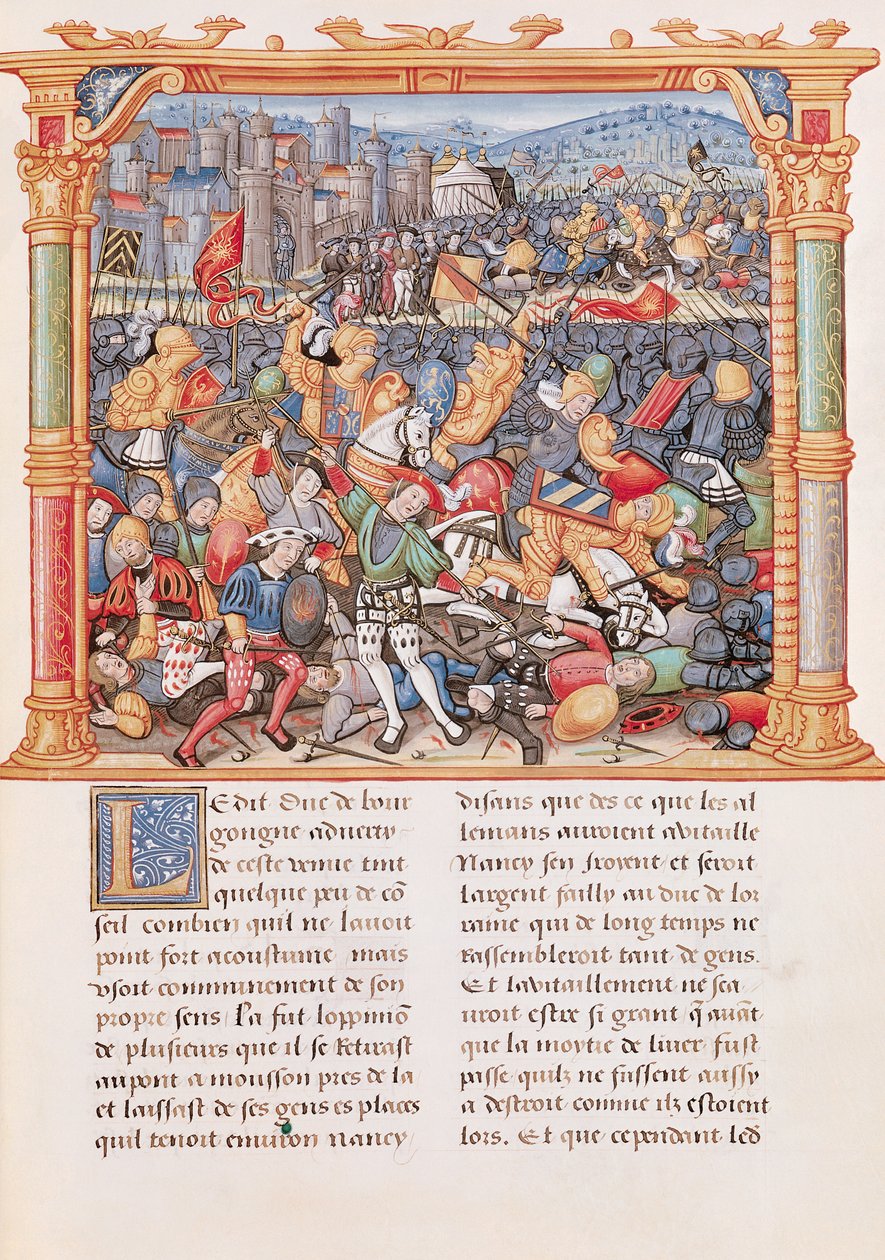 Ledit Duc de bour
gongne aduerty
de ceste venue tint
quelque peu de cõ
seil combien quil ne lauoit
point fort acoustume mais
vsoit communement de son
propre sens. La fut loppiniõ
de plusieurs que il se Retirast
aupont a mousson pres de la
et laissast de ses gens es places
quil tenoit enuiron nancy
disans que des ce que les al
lemans auroient auitaille
Nancy sen yroyent et seroit
largent failly au duc de lor
raine qui de long temps ne
Rassembleroit tant de gens.
Et lauitaillement ne sca
uroit estre si grant q̃ auãt
que la moytie de liuer fust
passe quilz ne fussent aussy
a destroit comme ilz estoient
lors. Et que cependant led